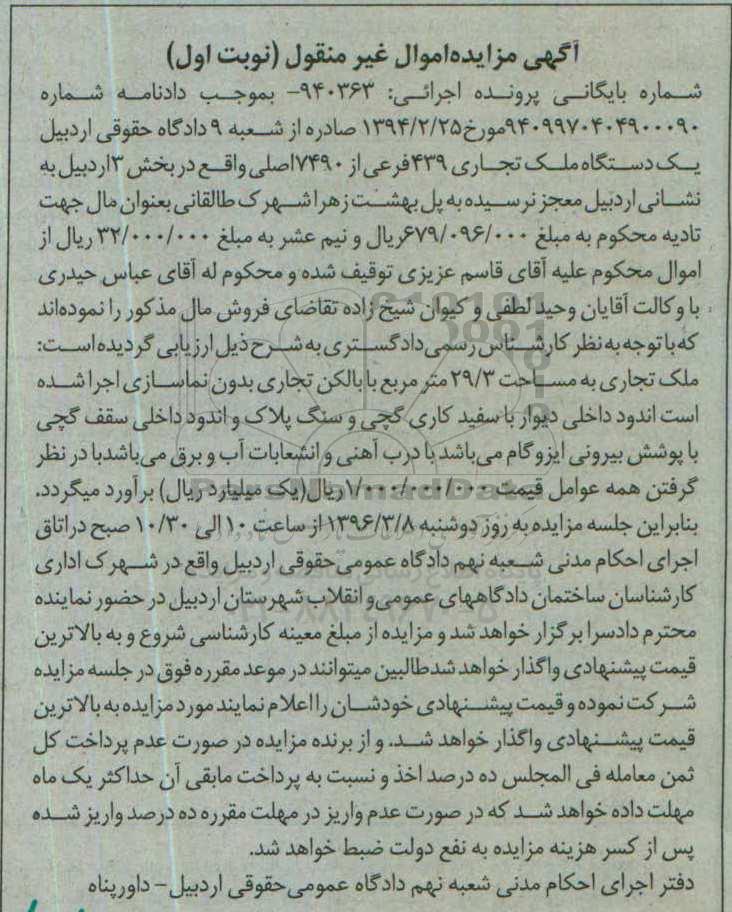 آگهی مزایده‌اموال غیر منقول (نوبت اول)
شماره بایگانی پرونده اجرائی: ۹۴۰۳۶۳- بموجب دادنامه شماره
۹۴۰۹۹۷۰۴۰۴۹۰۰۰۹۰مورخ۱۳۹۴/۲/۲۵ صادره از شعبه ۹ دادگاه حقوقی اردبیل
یک دستگاه ملک تجاری ۴۳۹فرعی از ۷۴۹۰اصلی واقع در بخش ۳اردبیل به
نشانی اردبیل معجز نرسیده به پل بهشت زهرا شهرک طالقانی بعنوان مال جهت
تادیه محکوم به مبلغ ۶۷۹/۰۹۶/۰۰۰ریال و نیم عشر به مبلغ ۳۲/۰۰۰/۰۰۰ ریال از
اموال محکوم علیه آقای قاسم عزیزی توقیف شده و محکوم له آقای عباس حیدری
با وکالت آقایان وحید لطفی و کیوان شیخ زاده تقاضای فروش مال مذکور را نموده‌اند
که با توجه به نظر کارشناس رسمی دادگستری به شرح ذیل ارزیابی گردیده است:
ملک تجاری به مساحت ۲۹/۳ متر مربع با بالکن تجاری بدون نماسازی اجرا شده
است اندود داخلی دیوار با سفید کاری گچی و سنگ پلاک و اندود داخلی سقف گچی
با پوشش بیرونی ایزوگام می‌باشد با درب آهنی و انشعابات آب و برق می‌باشدبا در نظر
گرفتن همه عوامل قیمت ۱/۰۰۰/۰۰۰/۰۰۰ریال(یک میلیارد ریال) برآورد میگردد.
بنابراین جلسه مزایده به روز دوشنبه ۱۳۹۶/۳/۸ از ساعت ۱۰ الی ۱۰/۳۰ صبح دراتاق
اجرای احکام مدنی شعبه نهم دادگاه عمومی حقوقی اردبیل واقع در شهرک اداری
کارشناسان ساختمان دادگاههای عمومی و انقلاب شهرستان اردبیل در حضور نماینده
محترم دادسرا برگزار خواهد شد و مزایده از مبلغ معینه کارشناسی شروع و به بالاترین
قیمت پیشنهادی واگذار خواهد شدطالبین میتوانند در موعد مقرره فوق در جلسه مزایده
شرکت نموده و قیمت پیشنهادی خودشان را اعلام نمایند مورد مزایده به بالاترین
قیمت پیشنهادی واگذار خواهد شد. و از برنده مزایده در صورت عدم پرداخت کل
ثمن معامله فی المجلس ده درصد اخذ و نسبت به پرداخت مابقی آن حداکثر یک ماه
مهلت داده خواهد شد که در صورت عدم واریز در مهلت مقرره ده درصد واریز شده
پس از کسر هزینه مزایده به نفع دولت ضبط خواهد شد.
دفتر اجرای احکام مدنی شعبه نهم دادگاه عمومی حقوقی اردبیل- داورپناه